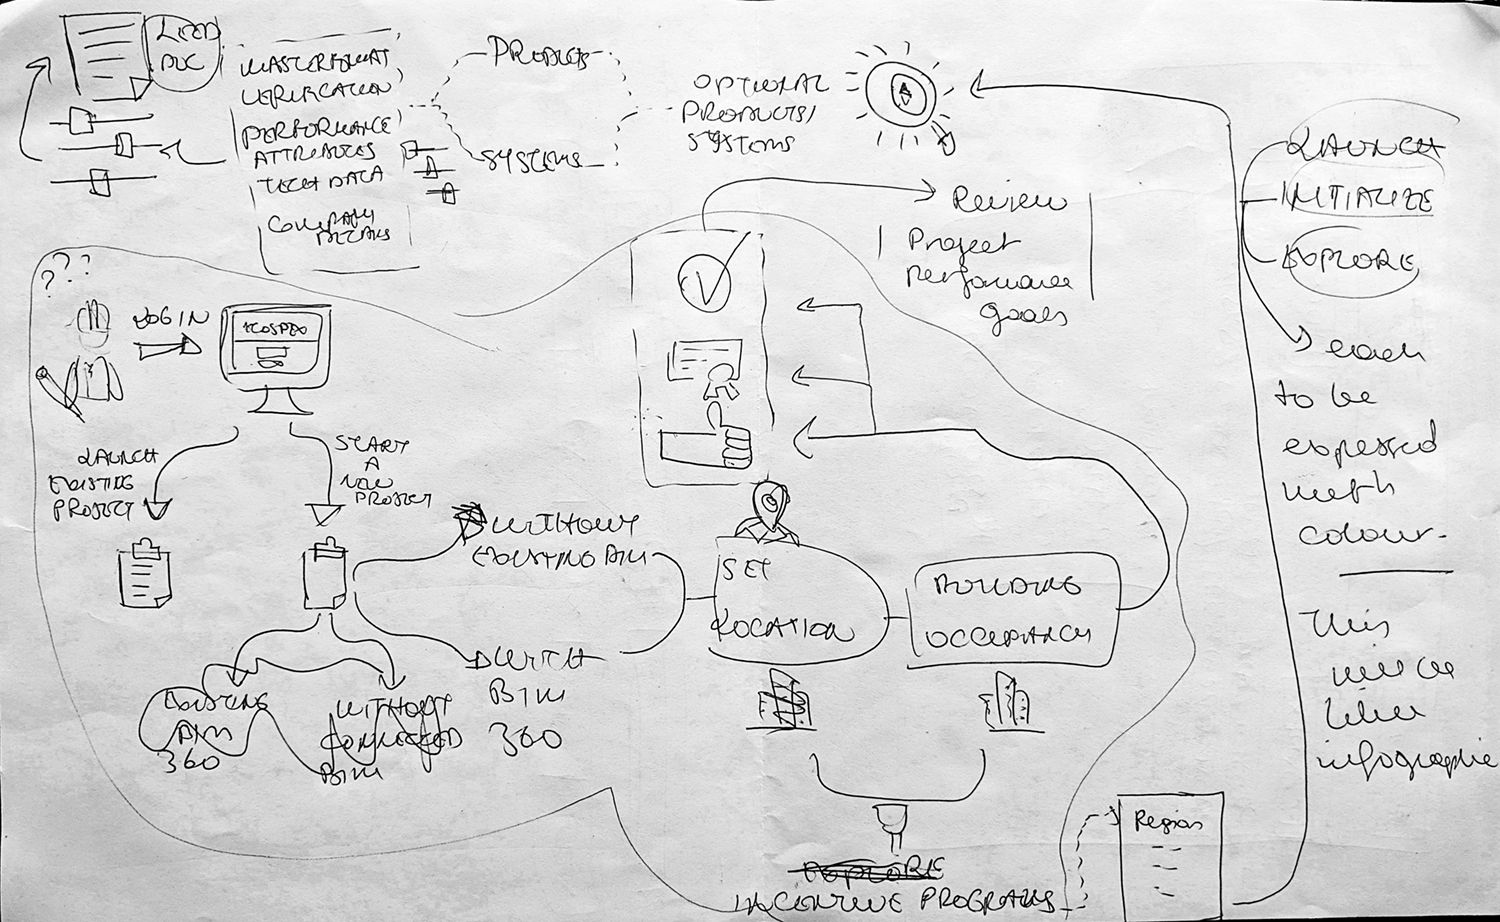 LEED
DOC
MASTERFORMAT
VERIFICATION
PERFORMANCE
ATTRIBUTES
TECH DATA
COMPANY
DETAILS
PRODUCTS
SYSTEMS
OPTIONAL
PRODUCTS/
SYSTEMS
LAUNCH
INITIALIZE
EXPLORE
each
to be
expressed
with
colour.
This
will be
like
infographic
Review
Project
performance
goals
???
LOGIN
LAUNCH
EXISTING
PROJECT
START
A
NEW
PROJECT
WITHOUT
EXISTING BIM
WITH
BIM
360
EXISTING
BIM
360
WITHOUT
CONNECTED
BIM
SET
LOCATION
BUILDING
OCCUPANCY
EXPLORE
INCENTIVE PROGRAMS
Region